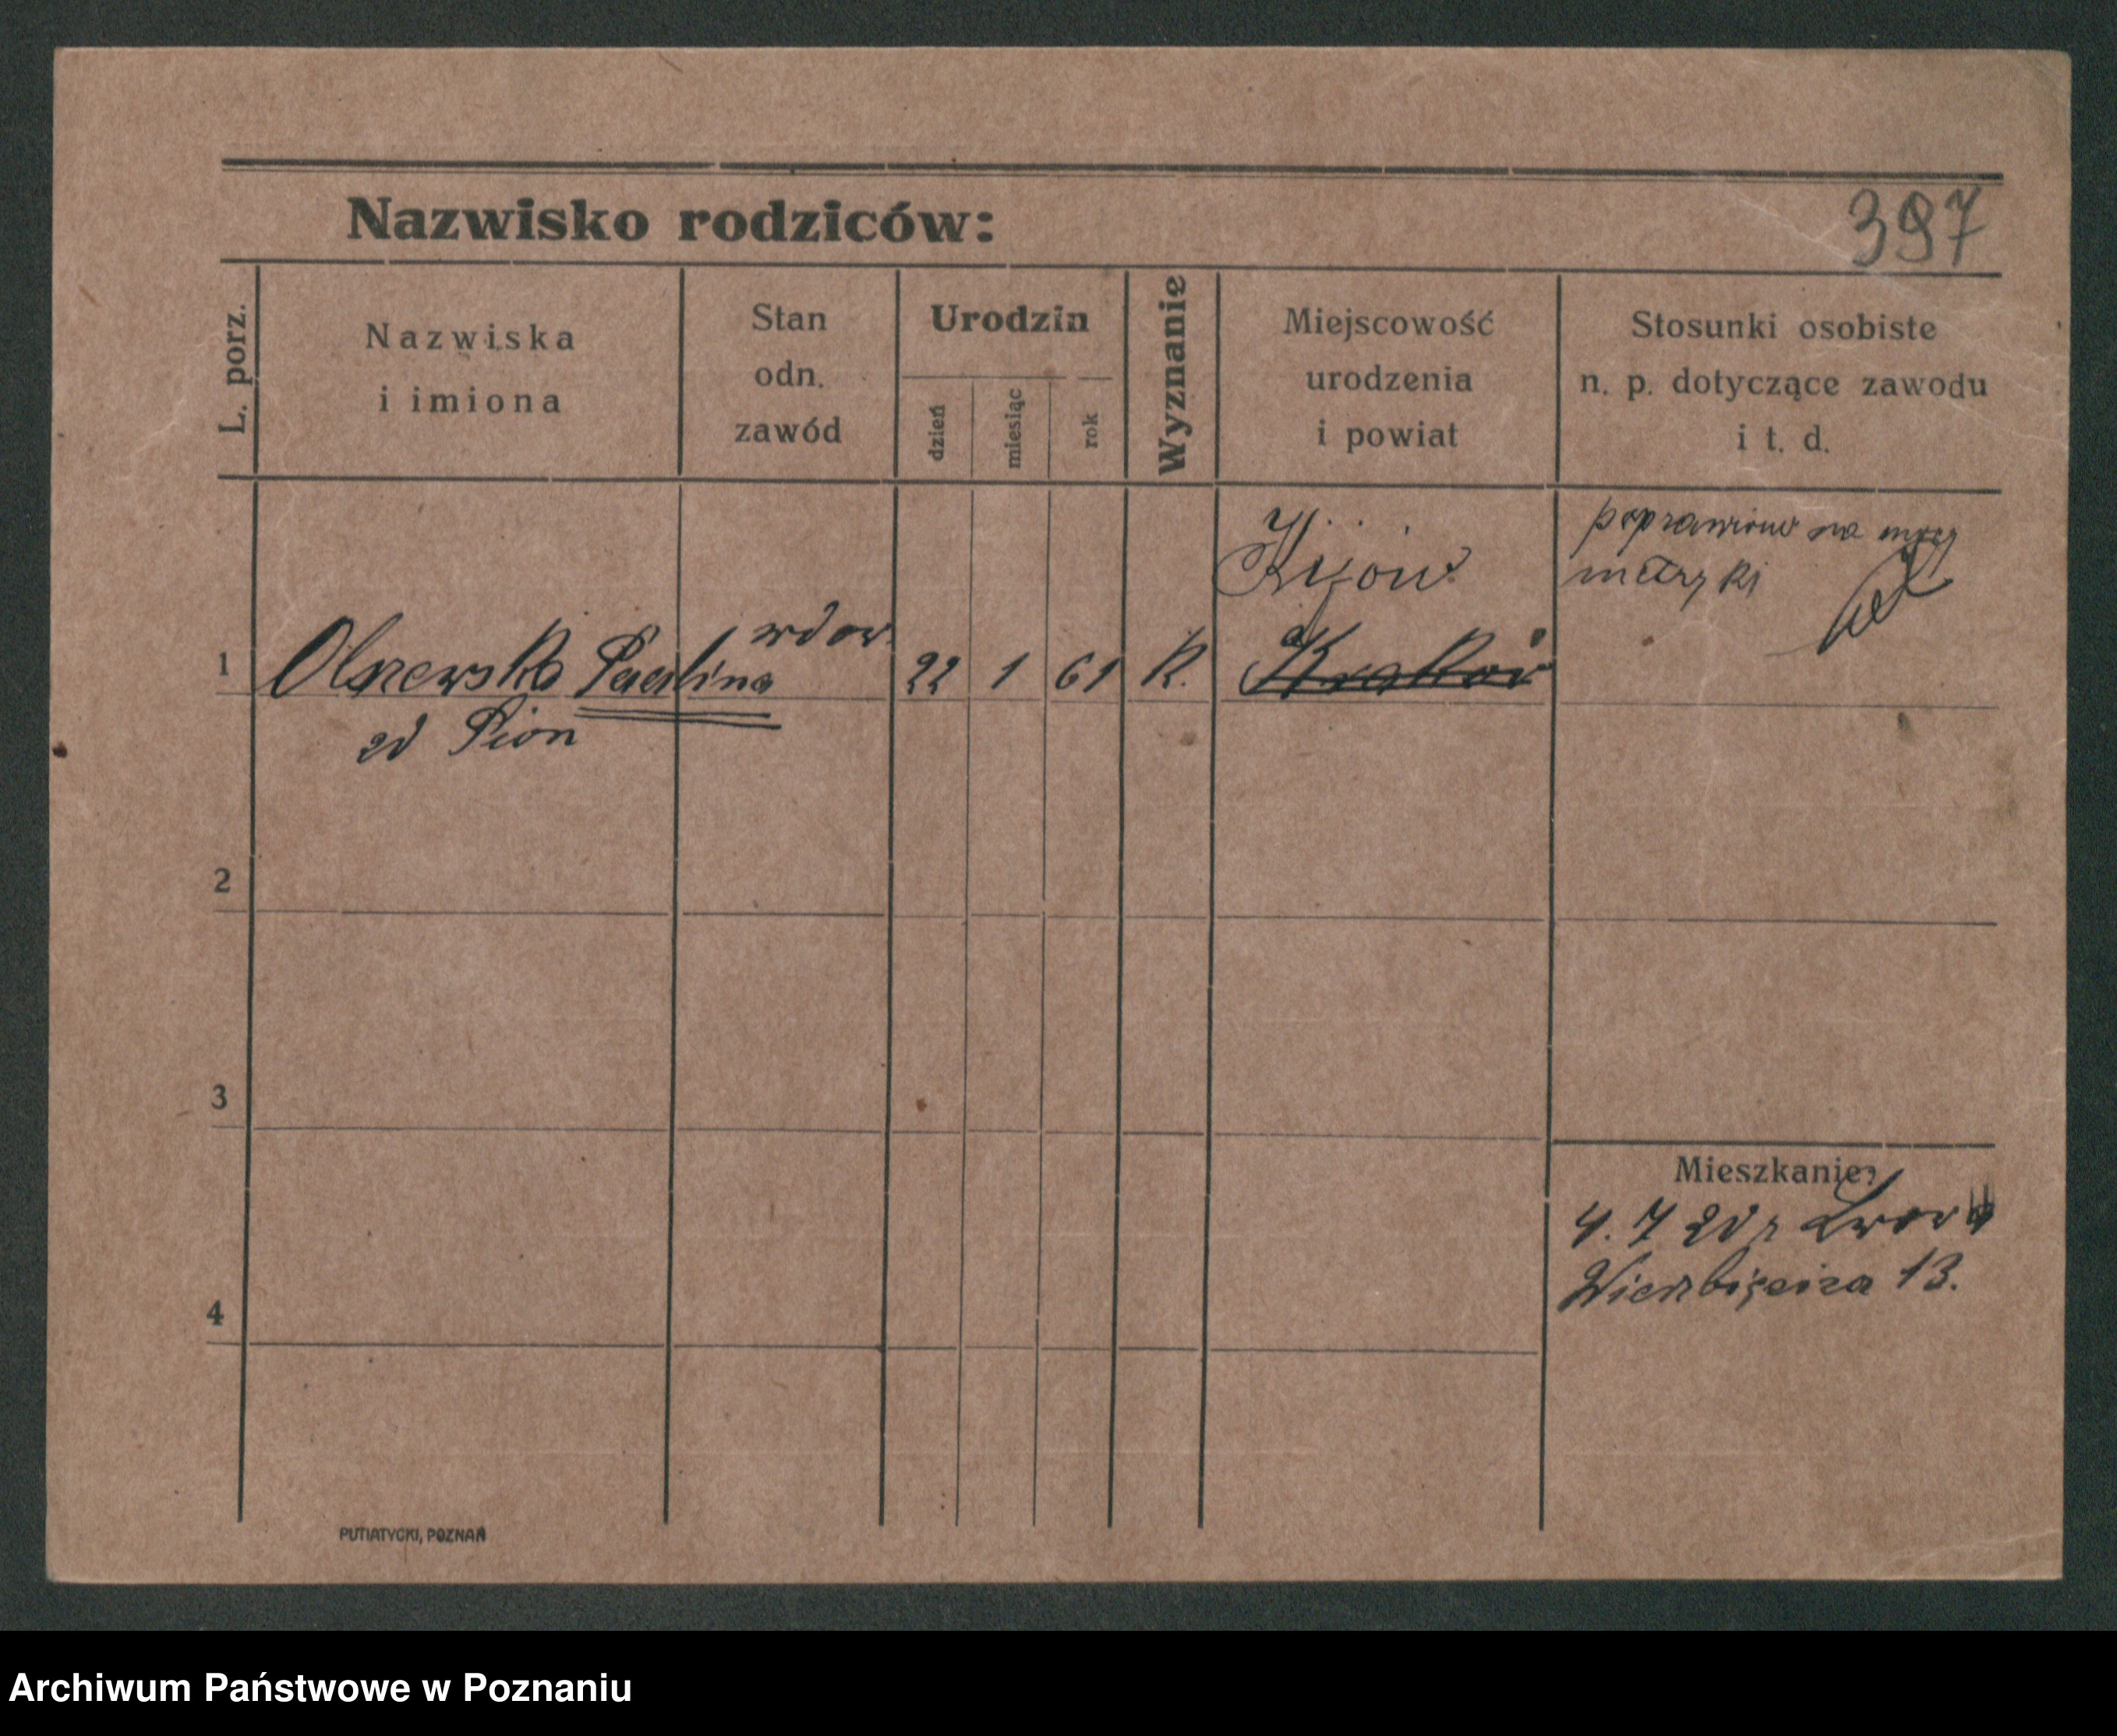 Nazwisko rodziców:
397
L. porz.
Nazwiska
i imiona
Stan
odn.
zawód
Urodzin
dzień
miesiąc
rok
Wyznanie
Miejscowość
urodzenia
i powiat
Stosunki osobiste
n. p. dotyczące zawodu
i t. d.
Kijów
poprawiono na mocy
metryki
1 Olszewska Paulina wdow. 22 1 61 K. Kraków
zd Pion
2
3
Mieszkanie:
4. 7 20 z Lwowa
Wierzbięcice 13.
4
PUTIATYCKI, POZNAŃ
Archiwum Państwowe w Poznaniu